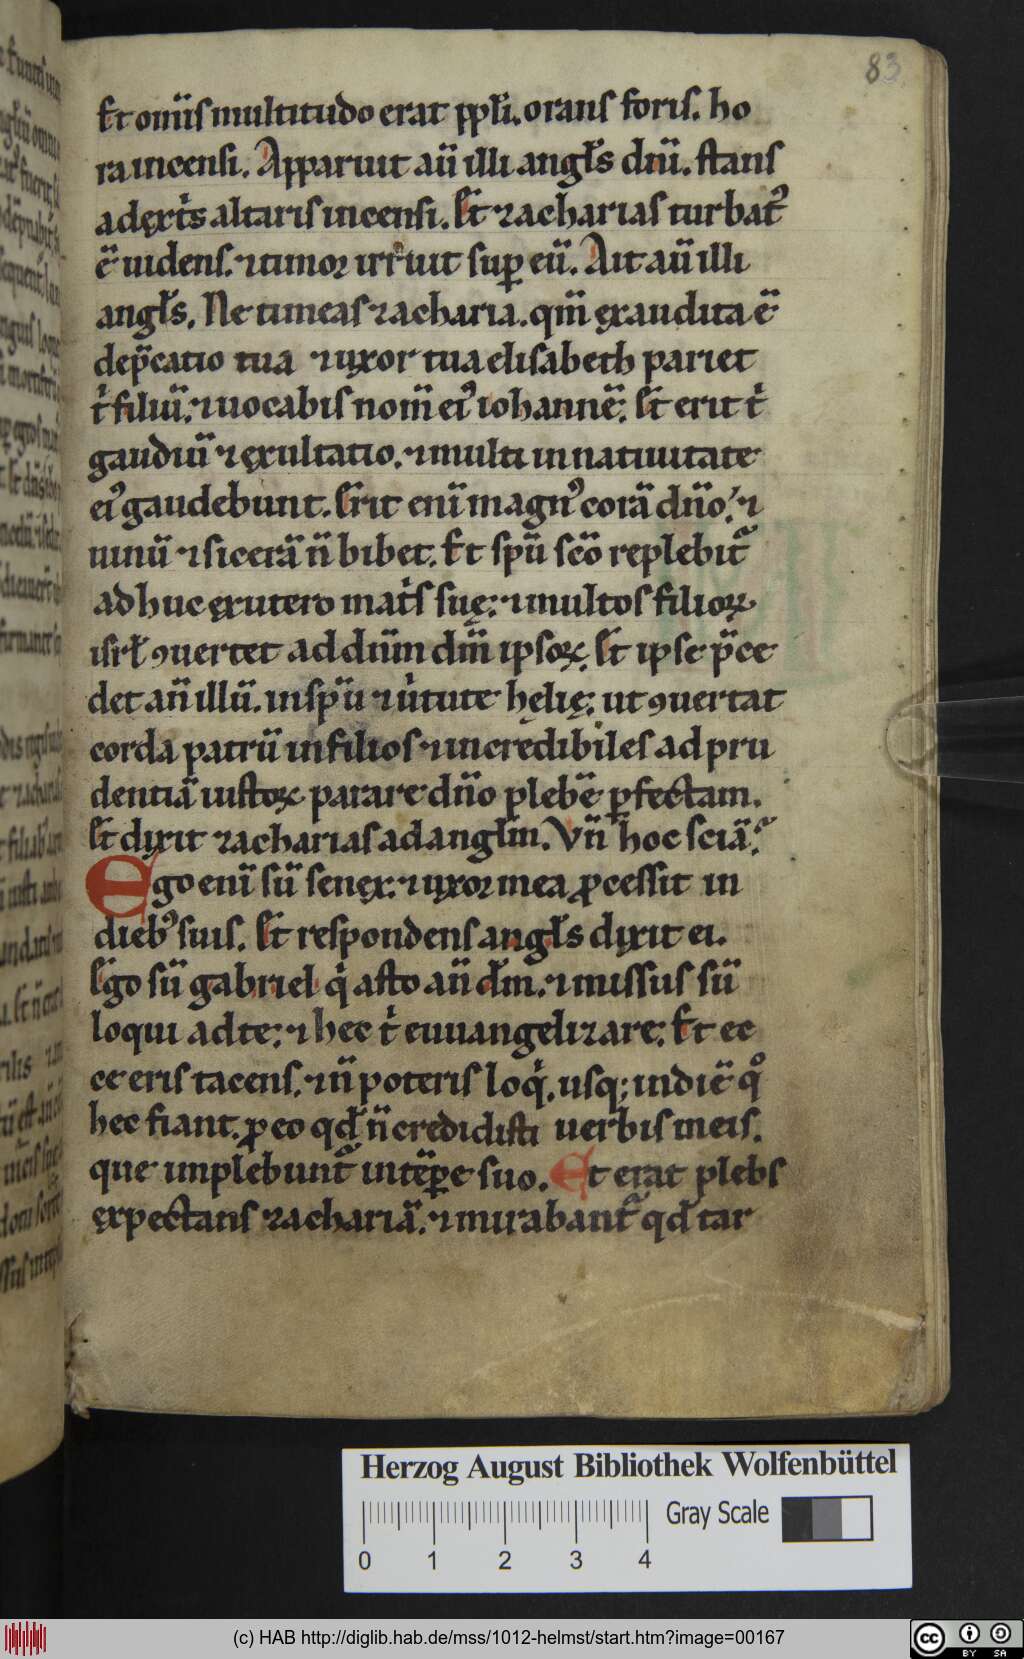 83
Et om̅is multitudo erat ppl̅i. orans foris. ho
ra incensi. Apparuit au̅ illi angl̅s dn̅i. stans
a dext̍s altaris incensi. Et zacharias turbatꝰ
e̅ uidens. ⁊ timor irruit sup̱ eu̅. Ait au̅ illi
angl̅s. Ne timeas zacharia. qm̅ exaudita e̅
dep̅catio tua ⁊ uxor tua elisabeth pariet
t̍ filiu̅. ⁊ uocabis nom̅ eiꝰ iohanne̅. Et erit t̍
gaudiu̅ ⁊ exultatio. ⁊ multi in natiuitate
eiꝰ gaudebunt. Erit eni̅ magnꝰ cora̅ dn̅o. ⁊
uinu̅ ⁊ sicera̅ n̅ bibet. Et sp̅u sc̅o replebit᷑
adhuc ex utero mat̍s suę. ⁊ multos filioꝝ
isrl̅ ꝯuertet ad dn̅m dm̅ ipsoꝝ. Et ipse p̅ce
det an̅ illu̅. in sp̅u ⁊ u̍tute hęlię. ut ꝯuertat
corda patru̅ in filios ⁊ incredibiles ad pru
dentia̅ iustoꝝ parare dn̅o plebe̅ ꝑfectam.
Et dixit zacharias ad anglm̅. Vn̅ hoc scia̅.
Ego eni̅ su̅ senex. ⁊ uxor mea ꝓcessit in
diebꝰ suis. Et respondens angl̅s dixit ei.
Ego su̅ gabriel q̍ asto an̅ dm̅. ⁊ missus su̅
loqui ad te. ⁊ hec t̍ euuangelizare. Et ec
ce eris tacens. ⁊ n̅ poteris loq̍. usq; in die̅ qͦ
hec fiant. ꝓ eo qd̅ n̅ credidisti uerbis meis.
que implebunt᷑ in te̅ꝑe suo. Et erat plebs
expectans zacharia̅. ⁊ mirabant᷑ qd̅ tar
Herzog August Bibliothek Wolfenbüttel
Gray Scale
0 1 2 3 4
(c) HAB http://diglib.hab.de/mss/1012-helmst/start.htm?image=00167
cc BY SA